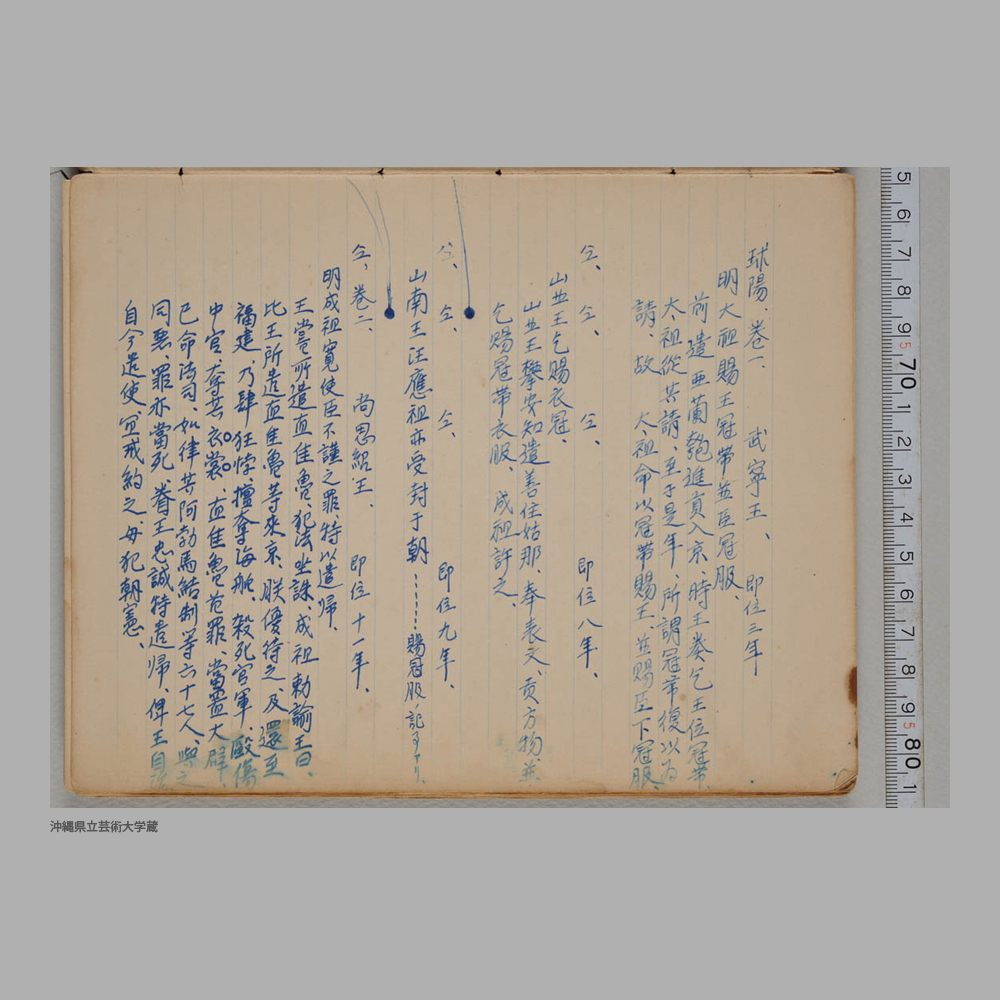 球陽、巻一、 武寧王、 即位三年
明大祖賜王冠帯並臣冠服、
前遣亜蘭匏進貢入京、時王奏乞王位冠帯、
太祖從其請、至于是年、所謂冠帯復以為
請、故 太祖命以冠帯賜王、並賜臣下冠服、
仝、 仝、 仝、 即位八年、
山北王乞賜衣冠、
山北王攀安知遣善住姑那、奉表文、貢方物並
乞賜冠帯衣服、成祖許之、
仝、 仝、 仝、 即位九年、
山南王汪應祖亦受封于朝……賜冠服ノ記事アリ、
仝、巻二、 尚思紹王、 即位十一年、
明成祖寛使臣不謹之罪特以遣歸、
王嘗所遣直佳魯、犯法坐誅、成祖勅諭王曰、
比王所遣直佳魯等來京、朕優待之、及還至
福建、乃肆狂悖、擅奪海舩、殺死官軍、毆傷
中官、奪其衣裳、直佳魯首罪、當置大辟、
已命法司、如律其阿勃馬結制等六十七人、與之
同悪、罪亦當死、眷王忠誠特遣歸、俾王自
自今遣使、宜戒約之、毋犯朝憲、
5 6 7 8 9 70 1 2 3 4 5 6 7 8 9 80 1
沖縄県立芸術大学蔵